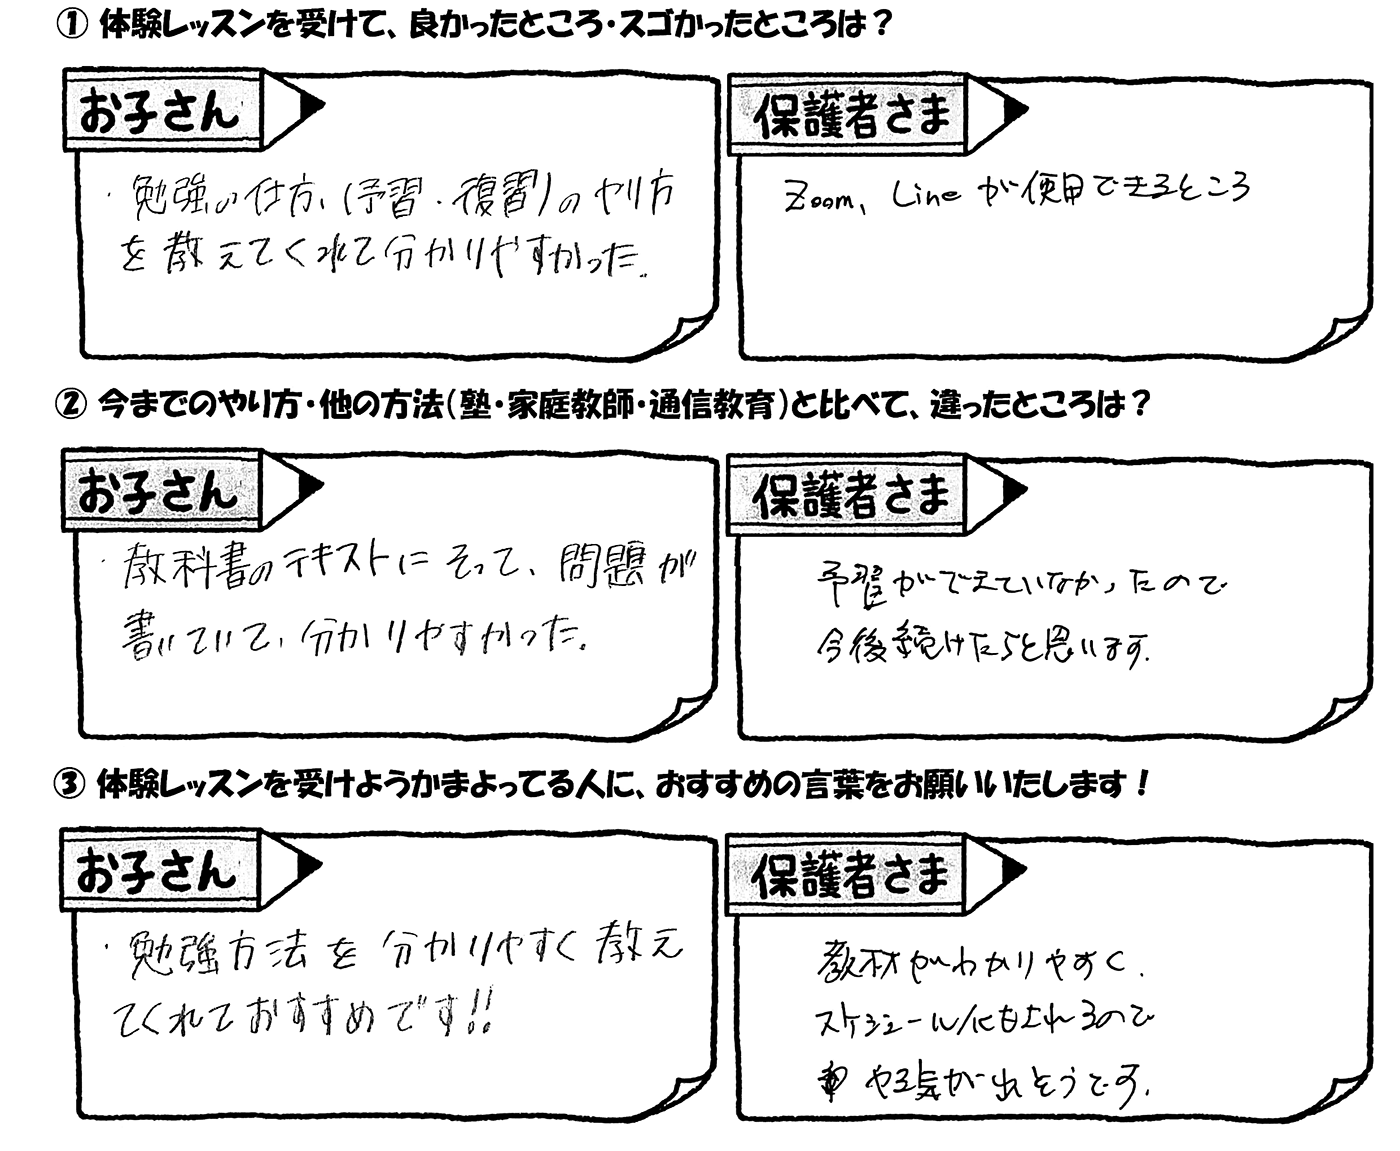 ① 体験レッスンを受けて、良かったところ・スゴかったところは？
お子さん
・勉強の仕方、(予習・復習)のやり方
を教えてくれて分かりやすかった。
保護者さま
Zoom、Lineが使用できるところ
② 今までのやり方・他の方法(塾・家庭教師・通信教育)と比べて、違ったところは？
お子さん
・教科書のテキストにそって、問題が
書いていて、分かりやすかった。
保護者さま
予習ができていなかったので
今後続けたらと思います。
③ 体験レッスンを受けようかまよってる人に、おすすめの言葉をお願いいたします！
お子さん
・勉強方法を分かりやすく教え
てくれておすすめです!!
保護者さま
教材がわかりやすく、
スケジュール化もされるので
やる気が出そうです。